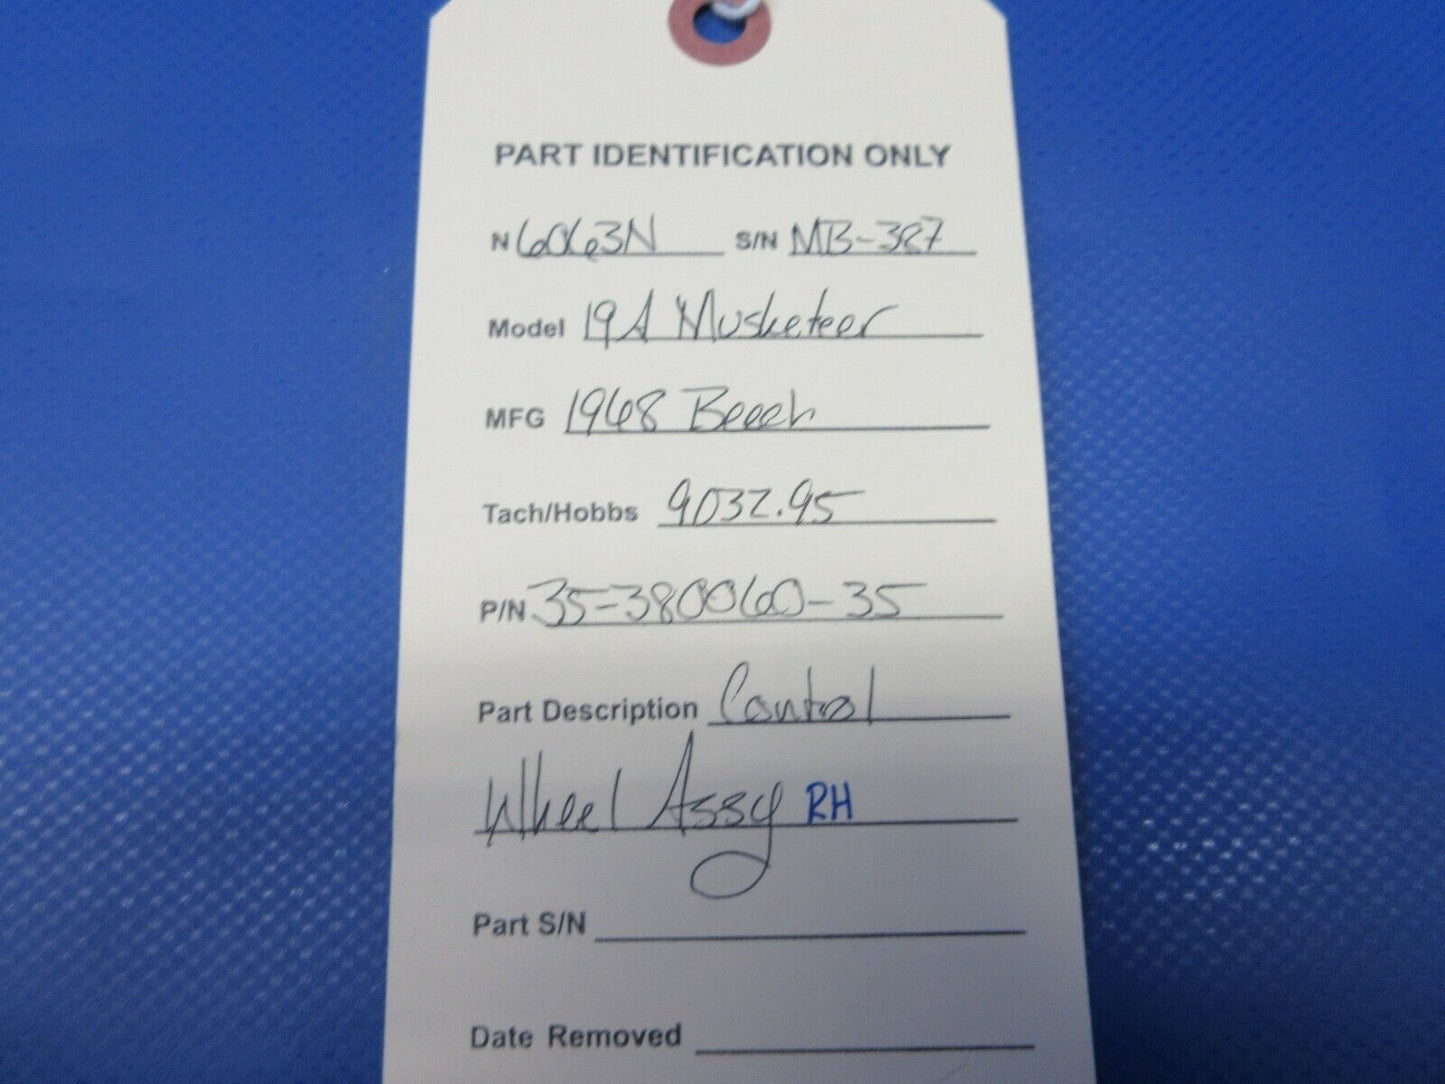 PART IDENTIFICATION ONLY
N 6063N S/N MB-387
Model 19A Musketeer
MFG 1968 Beech
Tach/Hobbs 9032.95
P/N 35-380060-35
Part Description Control
Wheel Assy RH
Part S/N
Date Removed